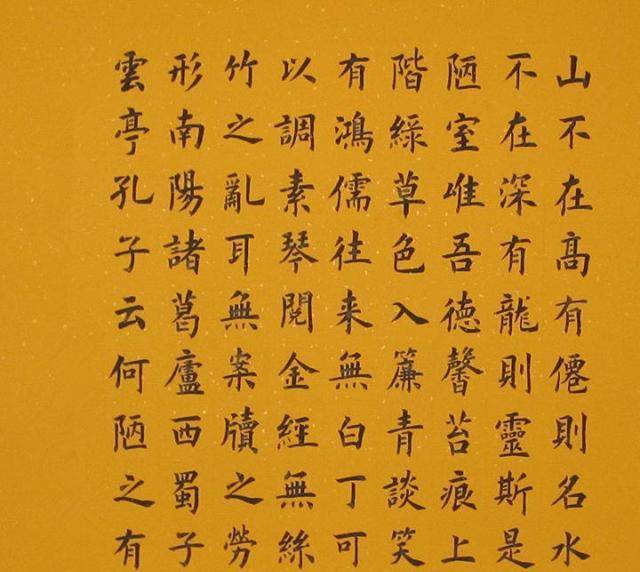 山不在高有僊則名水
不在深有龍則靈斯是
陋室唯吾德馨苔痕上
階緑草色入簾青談笑
有鴻儒往来無白丁可
以調素琴閲金經無絲
竹之亂耳無案牘之勞
形南陽諸葛廬西蜀子
雲亭孔子云何陋之有